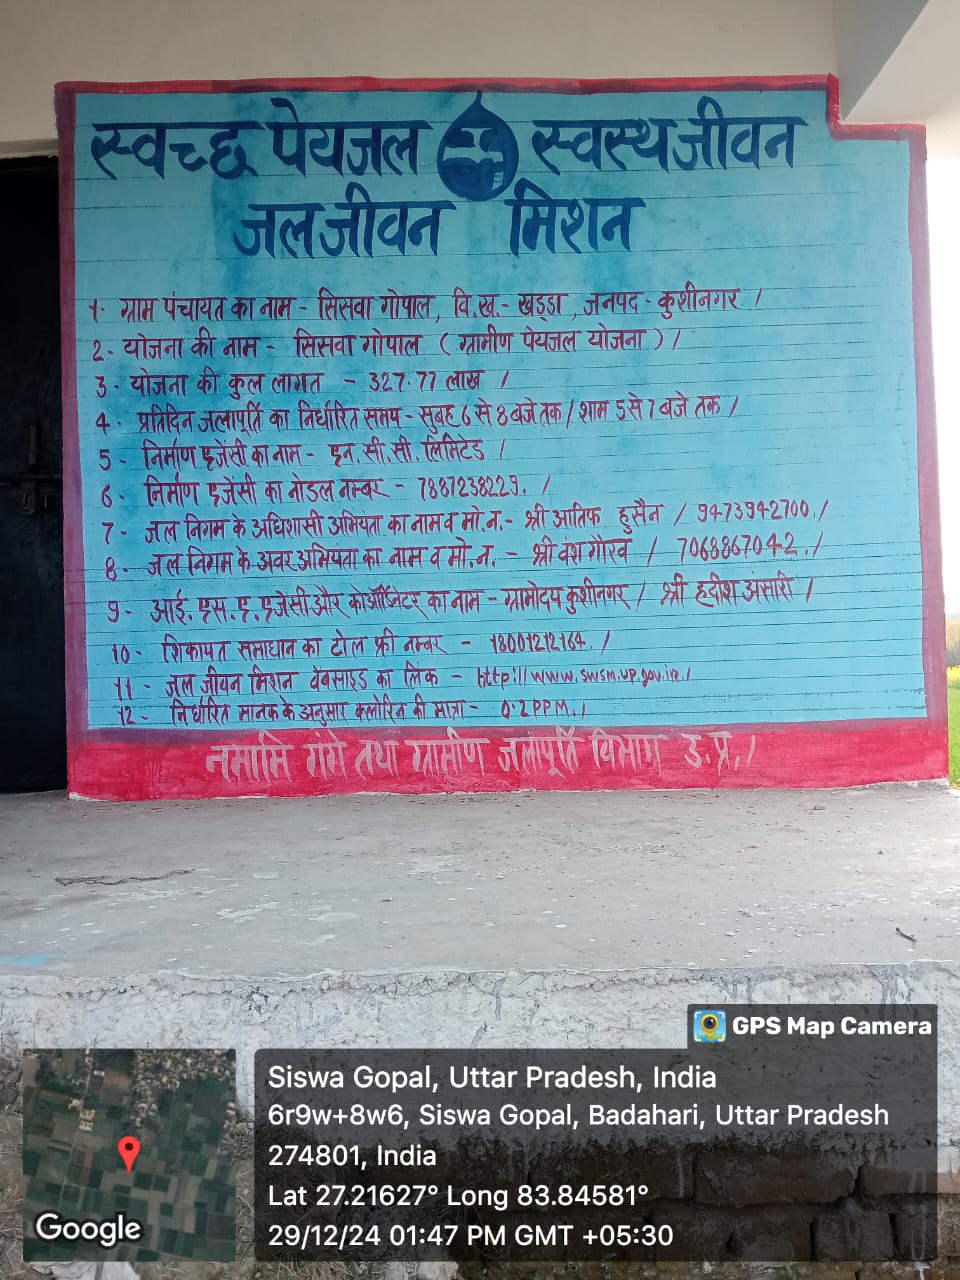 स्वच्छ पेयजल स्वस्थ जीवन
जल जीवन मिशन
1. ग्राम पंचायत का नाम - सिसवा गोपाल, वि.ख.- खड्डा, जनपद - कुशीनगर /
2- योजना की नाम - सिसवा गोपाल (ग्रामीण पेयजल योजना) /
3- योजना की कुल लागत - 327.77 लाख /
4- प्रतिदिन जलापूर्ति का निर्धारित समय - सुबह 6 से 8 बजे तक / शाम 5 से 7 बजे तक /
5- निर्माण एजेंसी का नाम - एन.सी.सी. लिमिटेड /
6- निर्माण एजेंसी का नोडल नम्बर - 7887238229. /
7- जल निगम के अधिशासी अभियंता का नाम व मो.न.- श्री आतिफ हुसैन / 9473942700. /
8- जल निगम के अवर अभियंता का नाम व मो.न. - श्री वंश गौरव / 7068867042. /
9- आई.एस.ए. एजेंसी और कोऑर्डिनेटर का नाम - ग्रामोदय कुशीनगर / श्री हदीश अंसारी /
10- शिकायत समाधान का टोल फ्री नम्बर - 18001212164. /
11- जल जीवन मिशन वेबसाइड का लिंक - http://www.swsm.up.gov.in /
12- निर्धारित मानक के अनुसार क्लोरिन की मात्रा - 0.2 PPM. /
नमामि गंगे तथा ग्रामीण जलापूर्ति विभाग उ.प्र. /
GPS Map Camera
Siswa Gopal, Uttar Pradesh, India
6r9w+8w6, Siswa Gopal, Badahari, Uttar Pradesh
274801, India
Lat 27.21627° Long 83.84581°
29/12/24 01:47 PM GMT +05:30
Google